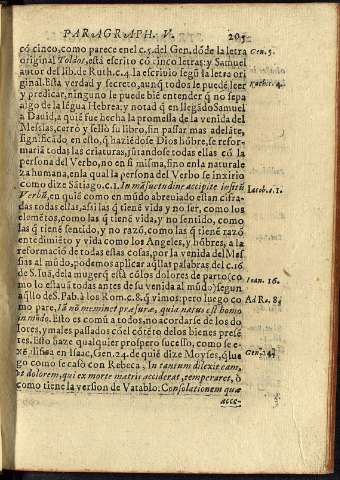 PARAGRAPH. V. 205
có cinco, como parece enel c.5. del Gen. dóde la letra
Gen. 5.
original Toldos, está escrito có cinco letras: y Samuel
autor del lib. de Ruth. c.4. la escriuio segū la letra ori
ginal. Esta verdad y secreto, aunq̃ todos le puedē leer
y predicar, ninguno le puede biē entender q̃ no sepa
algo de la légua Hebrea: y notad q̃ en llegādo Samuel
a Dauid, a quiē fue hecha la promessa de la venida del
Messias, cerró y sello su libro, sin passar mas adelāte,
significādo en esto, q̃ haziēdose Dios hóbre, se refor-
mariā todas las criaturas, jūtandose todas ellas có la
persona del Verbo, no en si misma, sino enla naturale
za humana, enla qual la persona del Verbo se inxirio
como dize Sātiago. c.1. In māsuetudine accipite insitū
Iacob. c. 1.
Verbū, en quiē como en mūdo abreuiado estan cifra-
das todas ellas, assi las q̃ tienē vida y no ser, como los
elemētos, como las q̃ tienē vida, y no sentido, como
las q̃ tienē sentido, y no razó, como las q̃ tienē razó
entēdimiēto y vida como los Angeles, y hóbres, a la
reformació de todas estas cosas, por la venida del Mes
sias al mūdo, podemos aplicar aq̃llas palabras del c.16
de S. Iuā, dela muger q̃ está cólos dolores de parto (co
Ioan. 16.
mo lo estauā todas antes de la venida al mūdo) segun
aq̃llo de S. Pab. à los Rom. c.8. q̃ vimos: pero luego co
Ad Ro. 8.
mo pare, Iā nō meminet præsuræ, quia natus est homo
in mūdo. Esto es comū a todos, no acordarse de los do
lores, y males passados có el cótēto delos bienes presē
tes. Esto haze qualquier prospero sucesso, como se e-
xē plifica en Isaac, Gen. 24. de quiē dize Moyses, q̃ lue
Gen. 24.
go como se casò con Rebeca, In tantum dilexit eam,
vt dolorem, qui ex morte matris acciderat, temperaret, ò
como tiene la version de Vatablo: Consolationem quæ
acce-